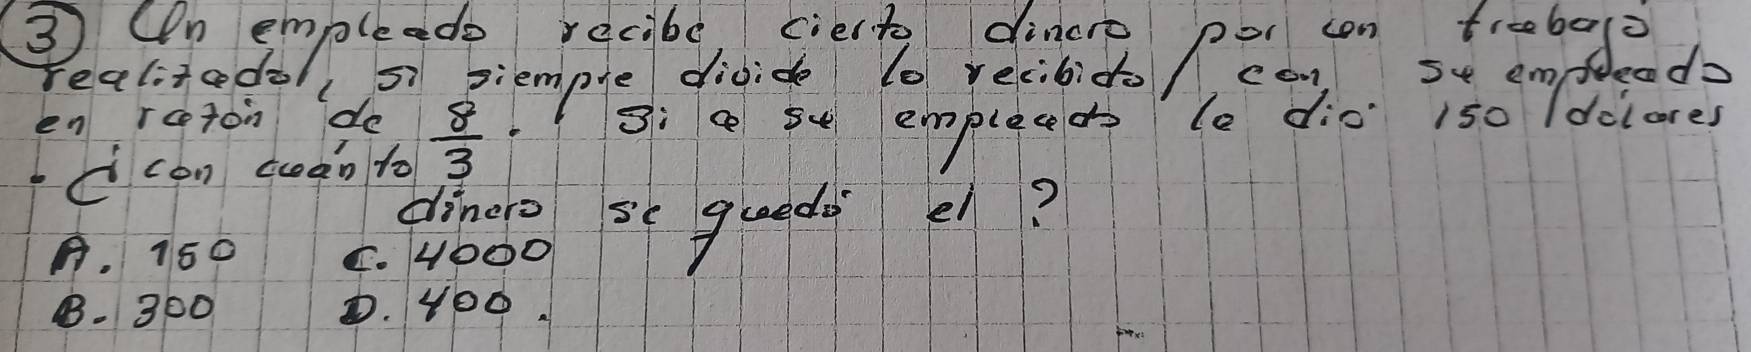 3 Un empleado recibe cierto dinero por un trabajo
realizado, si siempre divide lo recibido con su empleado
en razón de 8/3. Si a su empleado le dio 150 dólares
. ¿con cuánto
dinero se quedó el ?
A. 150 C. 4000
B. 300 D. 400.